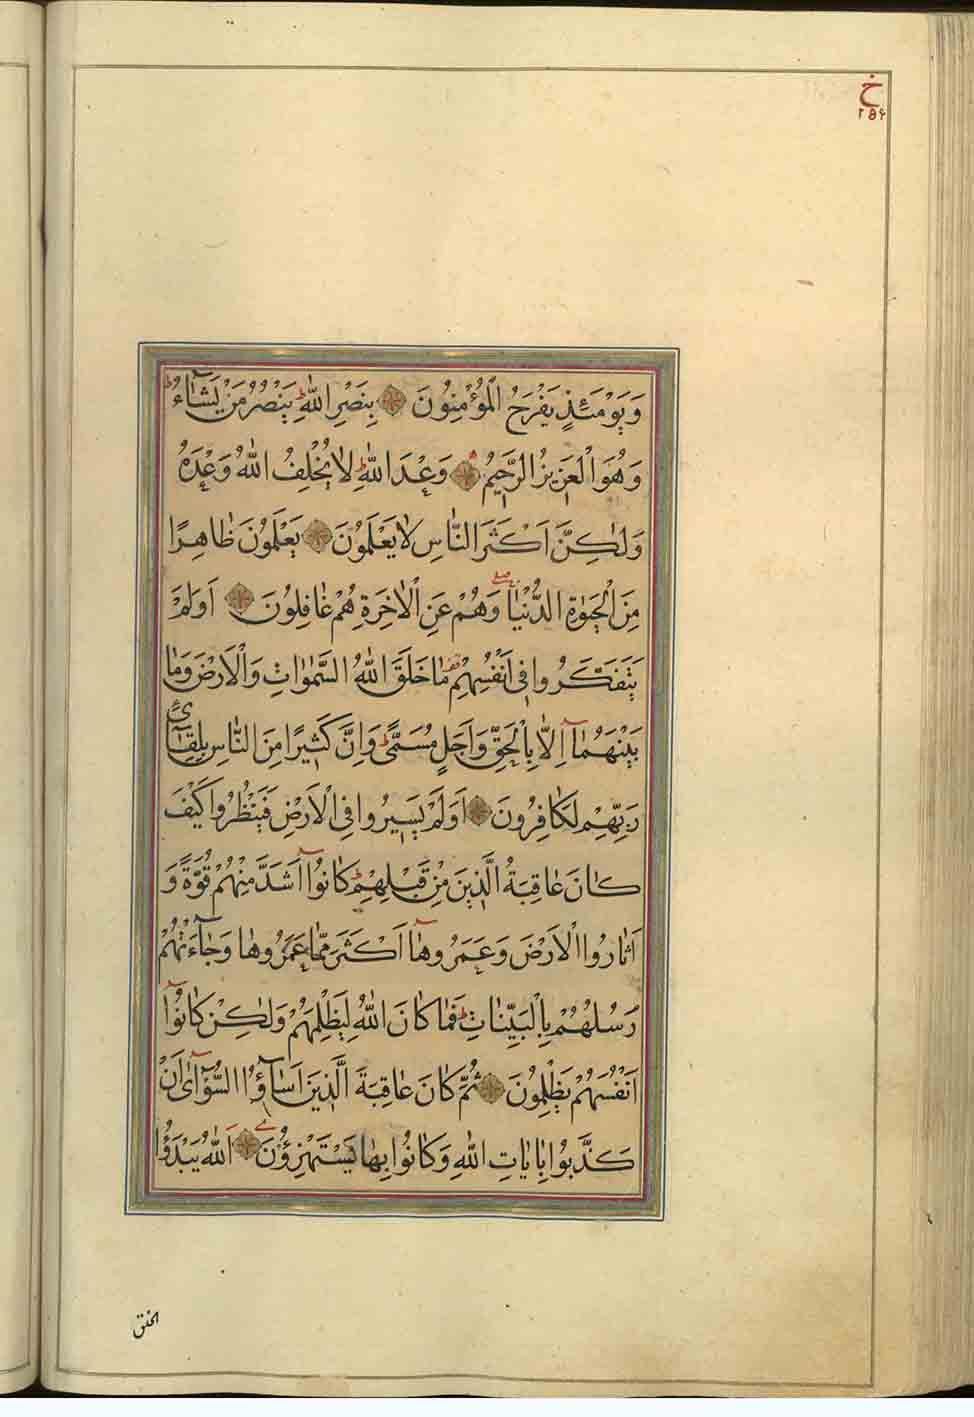 خ
۲۵۶
وَيَوْمَئِذٍ يَفْرَحُ الْمُؤْمِنُونَ بِنَصْرِ اللّٰهِ ط يَنْصُرُ مَنْ يَشَآءُ ط
وَهُوَ الْعَزِيزُ الرَّحِيمُ وَعْدَ اللّٰهِ ط لَا يُخْلِفُ اللّٰهُ وَعْدَهُ
وَلٰكِنَّ اَكْثَرَ النَّاسِ لَا يَعْلَمُونَ يَعْلَمُونَ ظَاهِرًا
مِنَ الْحَيٰوةِ الدُّنْيَا صلے وَهُمْ عَنِ الْاٰخِرَةِ هُمْ غَافِلُونَ اَوَلَمْ
يَتَفَكَّرُوا فِى اَنْفُسِهِمْ قف مَا خَلَقَ اللّٰهُ السَّمٰوَاتِ وَالْاَرْضَ وَمَا
بَيْنَهُمَآ اِلَّا بِالْحَقِّ وَاَجَلٍ مُسَمًّى ط وَاِنَّ كَثِيرًا مِنَ النَّاسِ بِلِقَآئِ
رَبِّهِمْ لَكَافِرُونَ اَوَلَمْ يَسِيرُوا فِى الْاَرْضِ فَيَنْظُرُوا كَيْفَ
كَانَ عَاقِبَةُ الَّذِينَ مِنْ قَبْلِهِمْ ط كَانُوٓا اَشَدَّ مِنْهُمْ قُوَّةً وَ
اَثَارُوا الْاَرْضَ وَعَمَرُوهَآ اَكْثَرَ مِمَّا عَمَرُوهَا وَجَآءَتْهُمْ
رُسُلُهُمْ بِالْبَيِّنَاتِ ط فَمَا كَانَ اللّٰهُ لِيَظْلِمَهُمْ وَلٰكِنْ كَانُوٓا
اَنْفُسَهُمْ يَظْلِمُونَ ثُمَّ كَانَ عَاقِبَةَ الَّذِينَ اَسَآؤُا السُّوٓاٰى اَنْ
كَذَّبُوا بِاٰيَاتِ اللّٰهِ وَكَانُوا بِهَا يَسْتَهْزِؤُنَ اَللّٰهُ يَبْدَؤُا
الخلق